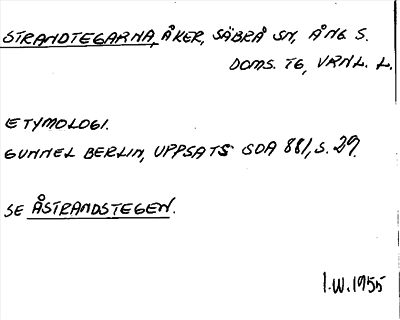 STRANDTEGARNA, ÅKER, SÄBRÅ SN, ÅNG. S.
DOMS. TG, VRNL. L.
ETYMOLOGI.
GUNNEL BERLIN, UPPSATS SOA 881, S. 29.
SE ÅSTRANDSTEGEN.
I.W. 1955